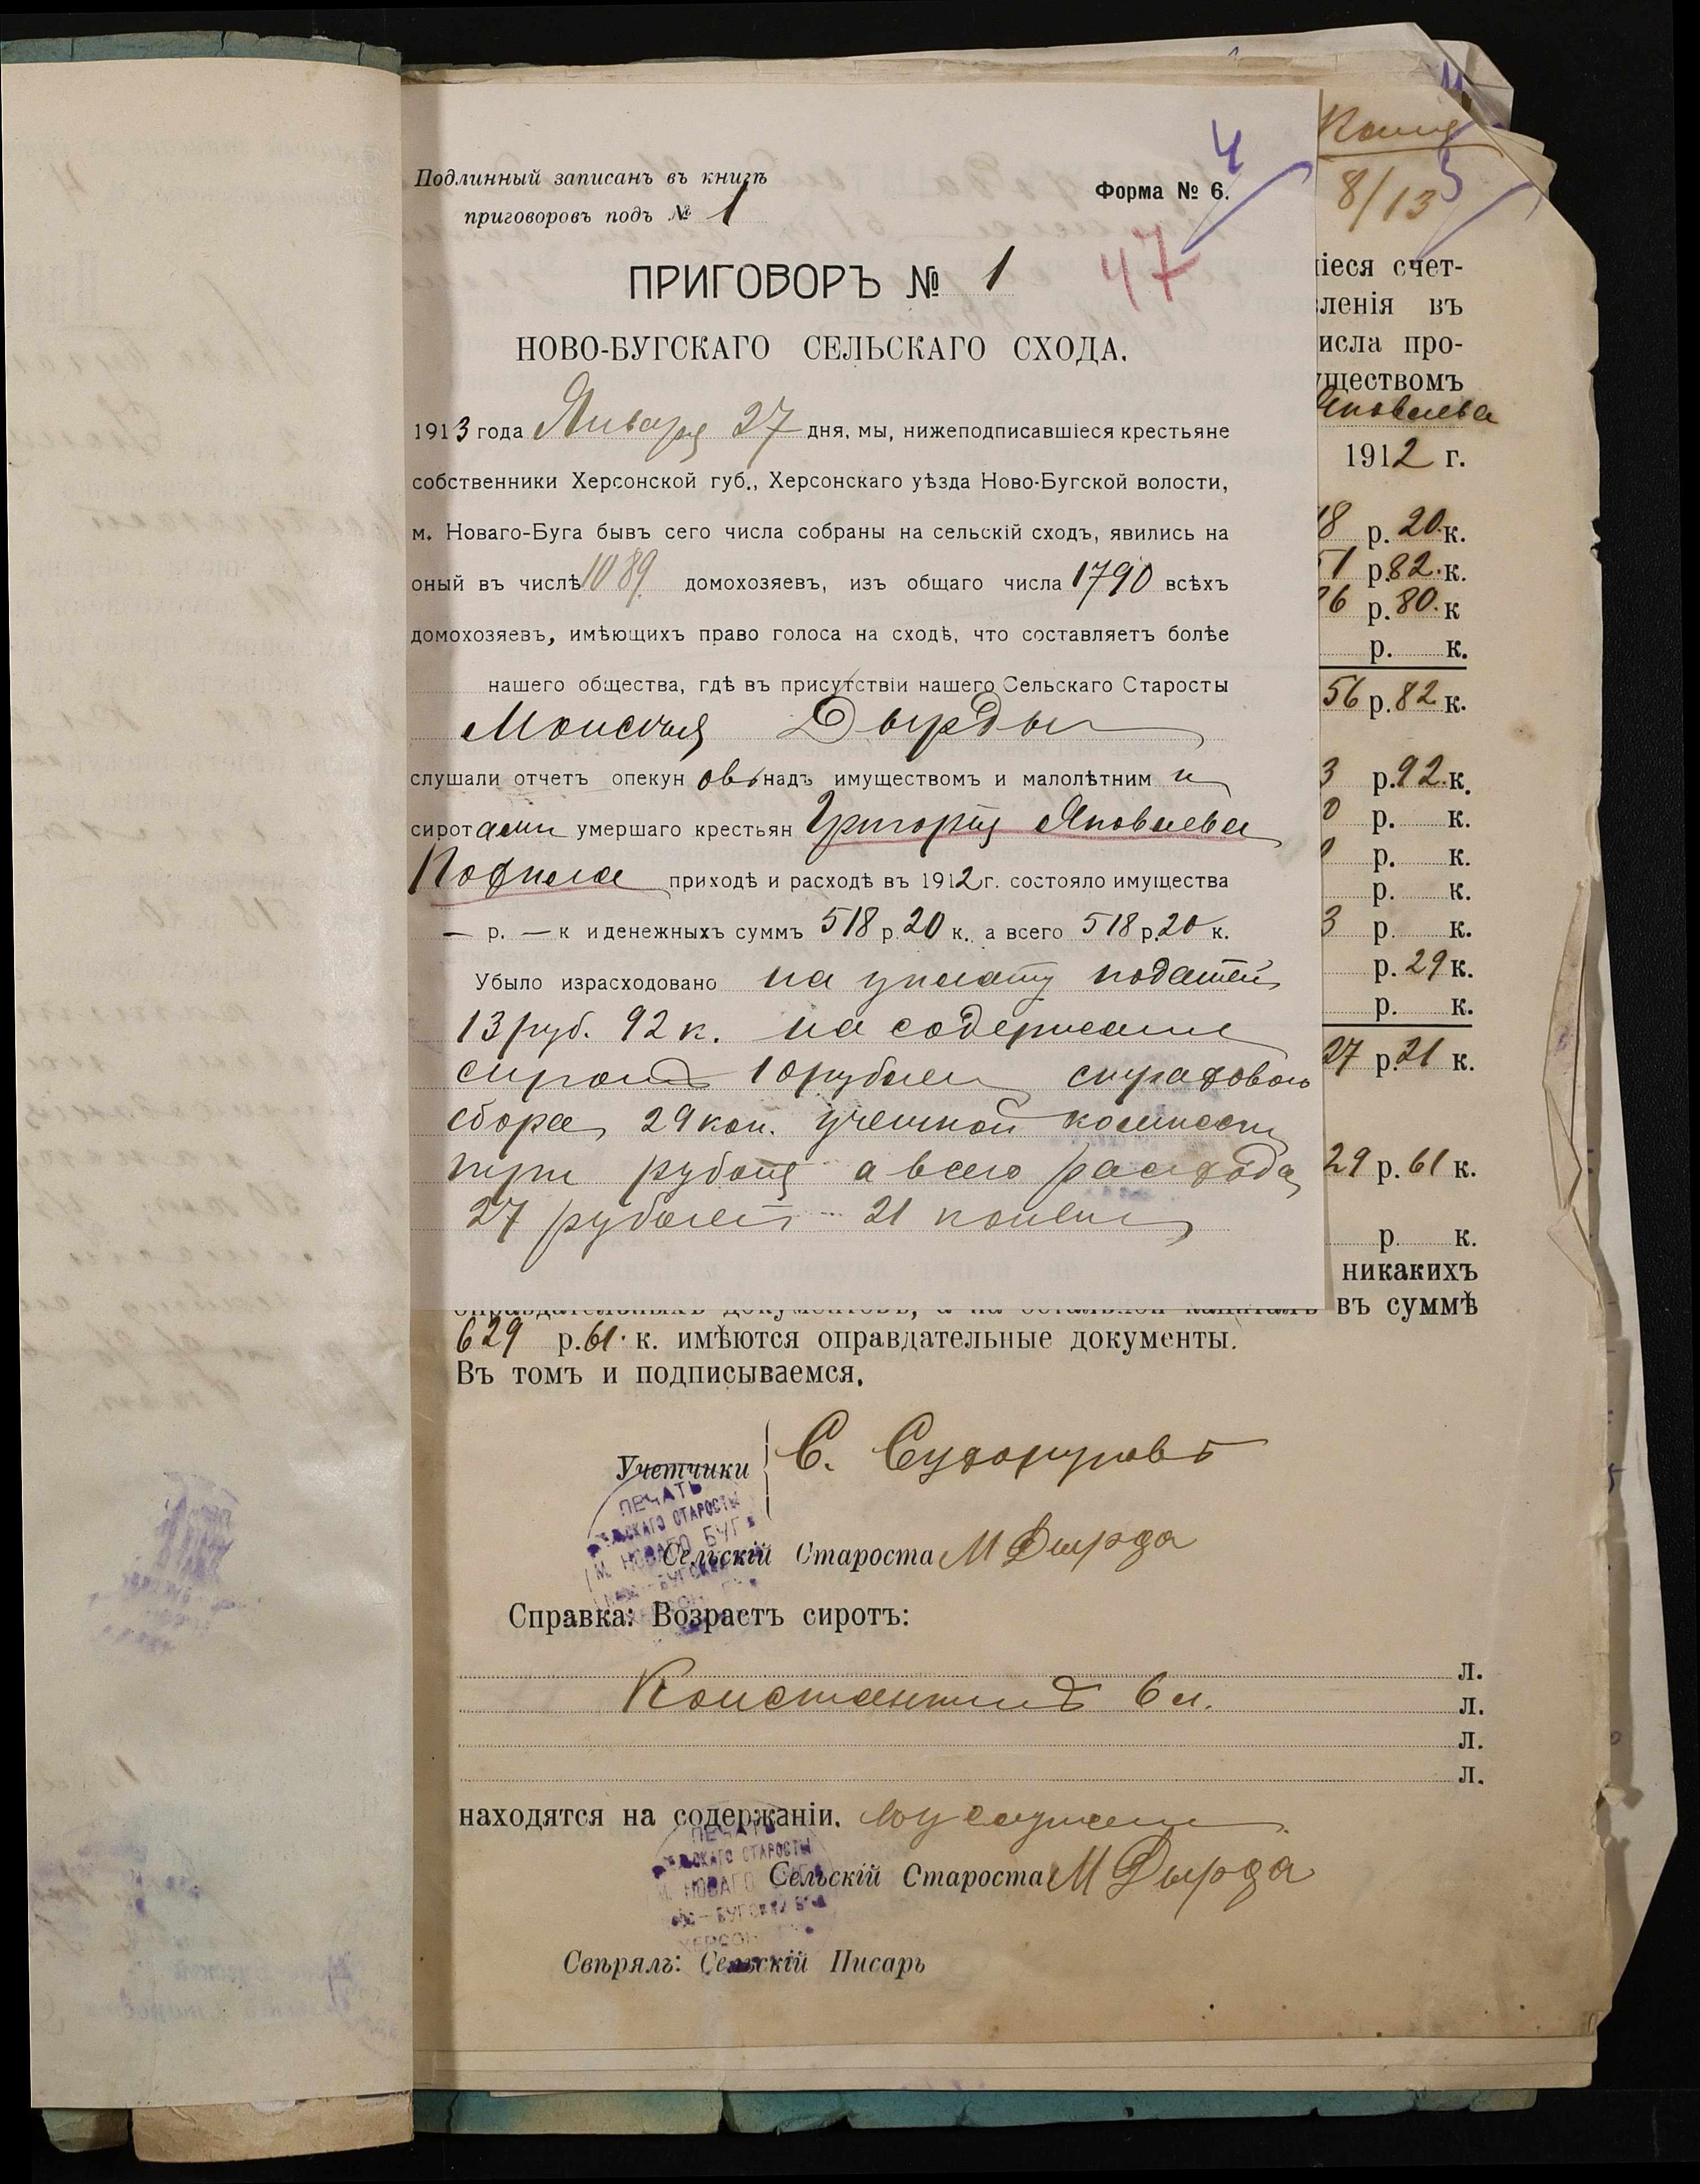 Подлинный записанъ въ книгѣ
приговоровъ подъ № 1
Форма № 6.
4
47
ПРИГОВОРЪ № 1
НОВО-БУГСКАГО СЕЛЬСКАГО СХОДА.
1913 года Января 27 дня, мы, нижеподписавшіеся крестьяне
собственники Херсонской губ., Херсонскаго уѣзда Ново-Бугской волости,
м. Новаго-Буга бывъ сего числа собраны на сельскій сходъ, явились на
оный въ числѣ 1089 домохозяевъ, изъ общаго числа 1790 всѣхъ
домохозяевъ, имѣющихъ право голоса на сходѣ, что составляетъ болѣе
нашего общества, гдѣ въ присутствіи нашего Сельскаго Старосты
Моисѣя Дырды
слушали отчетъ опекун овъ надъ имуществомъ и малолѣтним и
сирот ами умершаго крестьян Григорія Яковлева
приходѣ и расходѣ въ 1912 г. состояло имущества
— р. — к и денежныхъ суммъ 518 р. 20 к. а всего 518 р. 20 к.
Убыло израсходовано на уплату податей
13 руб. 92 к. на содержание
сиротъ 10 рублей страховою
сбора 29 коп. учетной комисси
три рубля а всего расхода
27 рублей 21 копеек
Копия
8/13
5
іеся счет-
ленія въ
исла про-
уществомъ
Яковлева
1912 г.
18 р. 20 к.
51 р. 82 к.
86 р. 80 к
р. к.
56 р. 82 к.
3 р. 92 к.
0 р. к.
р. к.
р. к.
3 р. к.
р. 29 к.
р. к.
27 р. 21 к.
29 р. 61 к.
р к.
никакихъ
оправдательныхъ документовъ, а на остальной капиталъ въ суммѣ
629 р. 61 к. имѣются оправдательные документы.
Въ томъ и подписываемся.
Учетчики С. Сухоруковъ
Сельскій Староста М Дырда
ПЕЧАТЬ
СЕЛЬСКАГО СТАРОСТЫ
М. НОВАГО БУГА
Справка: Возрастъ сиротъ:
л.
Константинъ 6 л. л.
л.
л.
находятся на содержаніи.
ПЕЧАТЬ
СЕЛЬСКАГО СТАРОСТЫ
М. НОВАГО
Сельскій Староста М Дырда
Свѣрялъ: Сельскій Писарь